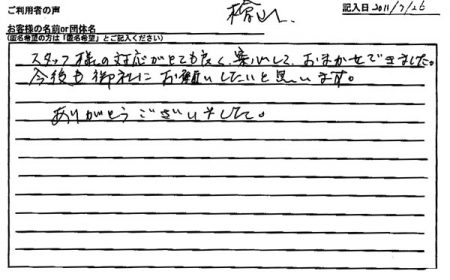 ご利用者の声
記入日 2011/7/26
お客様の名前or団体名
(匿名希望の方は「匿名希望」とご記入ください)
スタッフ様の対応がとても良く、安心して、おまかせできました。
今後も御社にお願いしたいと思います。
ありがとうございました。